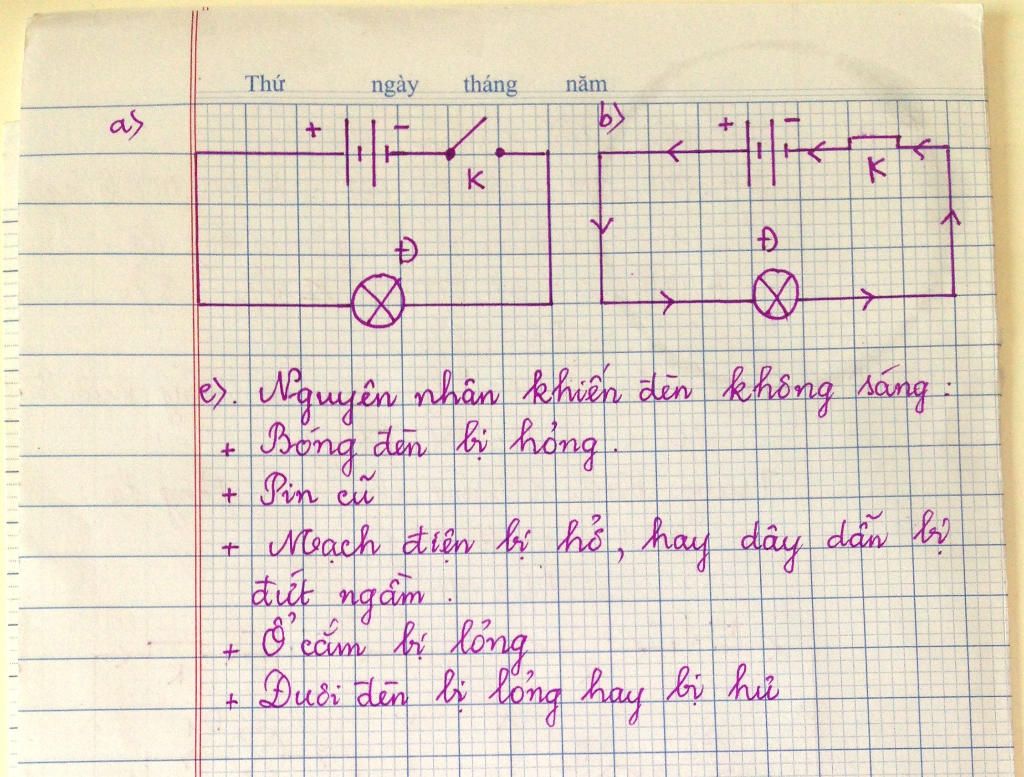 Thứ ngày tháng năm
a) + - b) + -
K K
Đ Đ
c). Nguyên nhân khiến đèn không sáng :
+ Bóng đèn bị hỏng .
+ Pin cũ
+ Mạch điện bị hở, hay dây dẫn bị
đứt ngầm .
+ Ổ cắm bị lỏng
+ Đuôi đèn bị lỏng hay bị hư